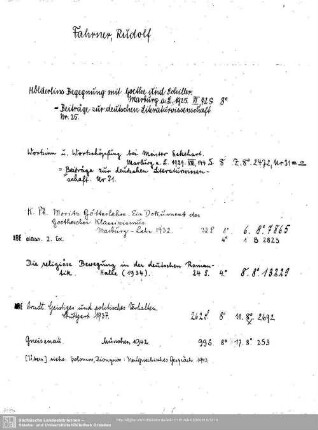 Fahrner, Rudolf
Hölderlins Begegnung mit Goethe und Schiller.
Marburg a. L. 1925. 92 S 8°
= Beiträge zur deutschen Literaturwissenschaft
Nr. 25.
Wortsinn u. Wortschöpfung bei Meister Eckehart.
Marburg a. L. 1929. 8° Z. 8° 2472, Nr 31
= Beiträge zur deutschen Literaturwissen-
schaft. Nr. 31.
K. Ph. Moritz Götterlehre. Ein Dokument des
Goetheschen Klassizismus
Marburg-Lahn 1932. 32 S 6. 8° 7865
2. Ex. 4° 1 B 2823
Die religiöse Bewegung in der deutschen Roman-
tik. Halle (1934). 24 S. 4° 8. 8° 13229
Arndt Geistiges und politisches Verhalten.
Stuttgart 1937. 262 S 8° 10. 8° 2692
Gneisenau. München 1942. 99 S. 8° 17. 8° 253
[Übers.] siehe Solomos, Dionysios: Neugriechisches Gespräch 1943